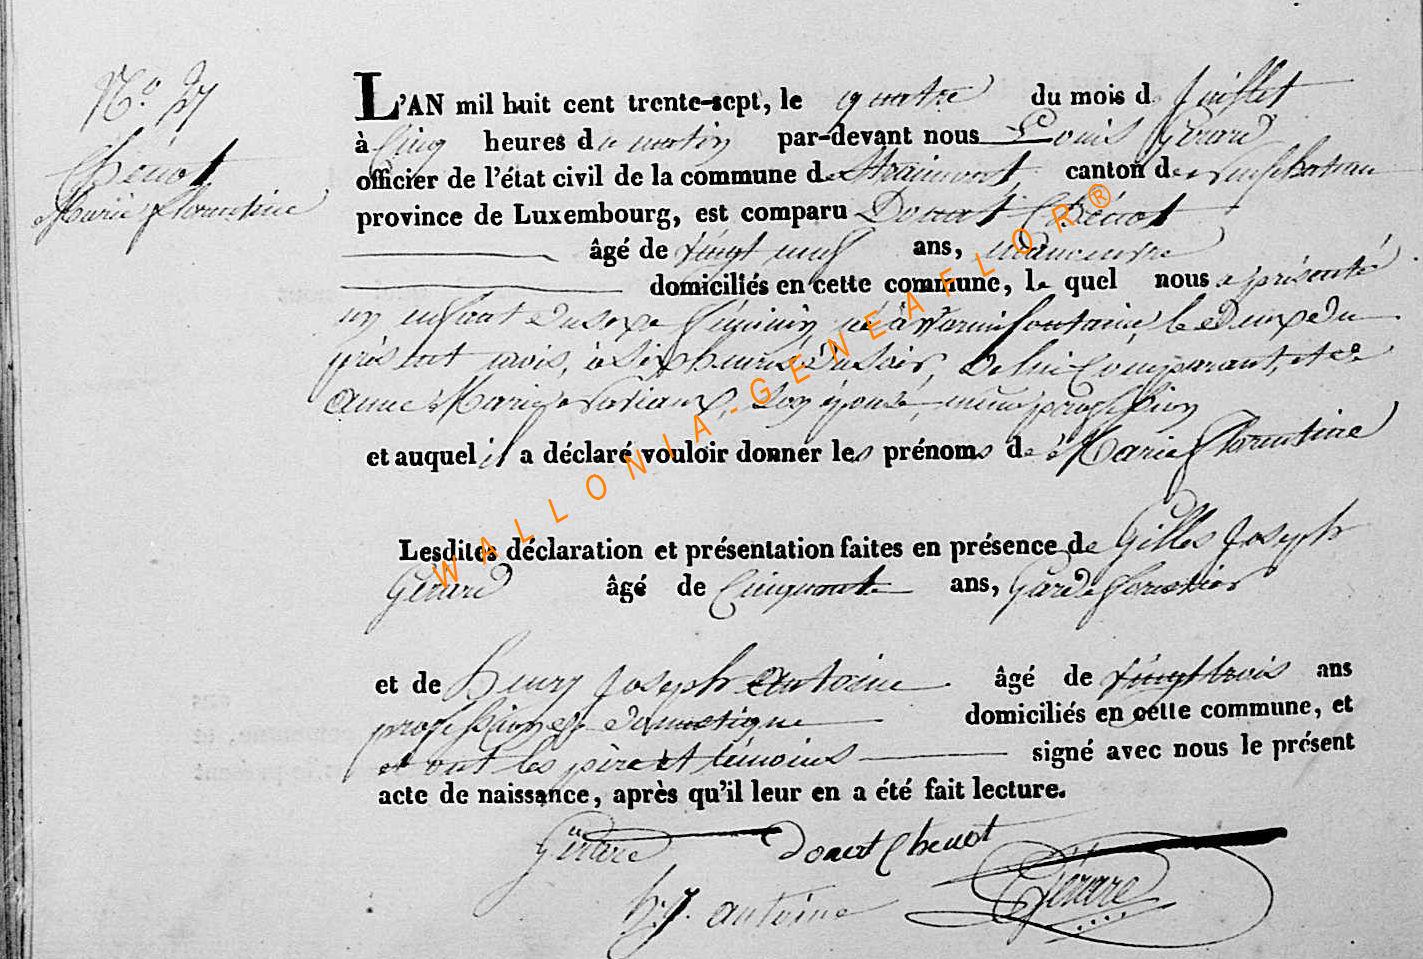 N.º 37
Chénot
Marie Florentine
L'AN mil huit cent trente-sept, le quatre du mois de Juillet
à Cinq heures du matin par-devant nous Louis Gérard
officier de l'état civil de la commune de Straimont canton de neufchateau
province de Luxembourg, est comparu Donat Chénot
âgé de vingt neuf ans, manoeuvre
domiciliés en cette commune, le quel nous a présenté
un enfant du sexe féminin, né à Warmifontaine le deux du
présent mois, à six heures du soir, de lui Comparant, et de
anne Marie son épouse, profession
et auquel il a déclaré vouloir donner les prénoms de Marie Florentine
Lesdites déclaration et présentation faites en présence de Gilles Joseph
Gérard âgé de Cinquante ans, Garde forestier
et de henry Joseph antoine âgé de vingt trois ans
profession de domestique domiciliés en cette commune, et
et ont les père et témoins signé avec nous le présent
acte de naissance, après qu'il leur en a été fait lecture.
Gérard donat Chenot
h. J. antoine Gérard
WALLONIA-GENEAFLOR®